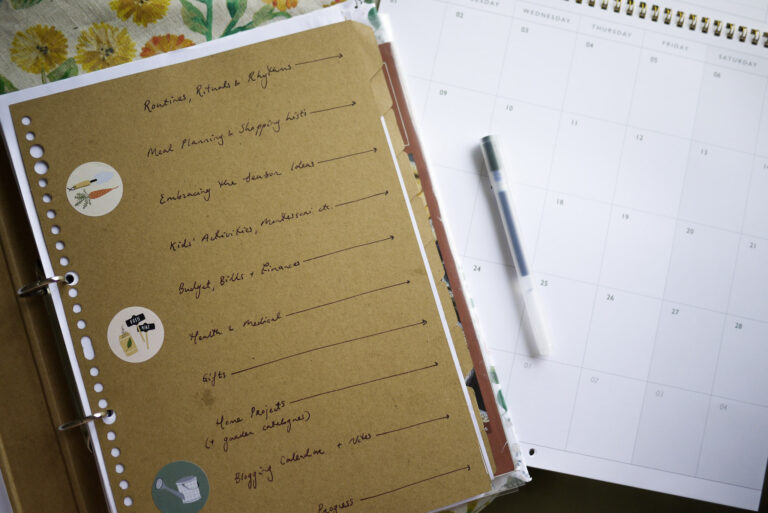 Routines, Rituals & Rhythms
Meal Planning & Shopping Lists
Embracing the Season Ideas
Kids' Activities, Montessori etc.
Budget, Bills + Finances
Health & Medical
Gifts
Home Projects
(+ garden catalogues)
Blogging Calendar + Notes
Progress
WEDNESDAY THURSDAY FRIDAY SATURDAY
02 03 04 05 06
09 10 11 12 13
18 19 20 21
24 25 26 27 28
02 03 04